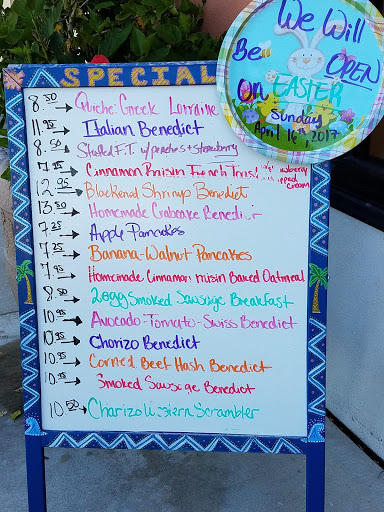 We Will
Be OPEN
On EASTER
Sunday
April 16th, 2017
SPECIAL
8.50 Quiche Greek Lorraine
11.95 Italian Benedict
8.50 Stuffed F.T. w/ peaches + strawberry
7.95 Cinnamon Raisin French Toast
cream
12.95 Blackened Shrimp Benedict
13.50 Homemade Crabcake Benedict
7.25 Apple Pancakes
7.25 Banana-Walnut Pancakes
7.95 Homemade Cinnamon raisin Baked Oatmeal
8.50 2 egg Smoked Sausage Breakfast
10.95 Avocado-Tomato-Swiss Benedict
10.95 Chorizo Benedict
10.95 Corned Beef Hash Benedict
10.95 Smoked Sausage Benedict
10.50 Charizo Western Scrambler